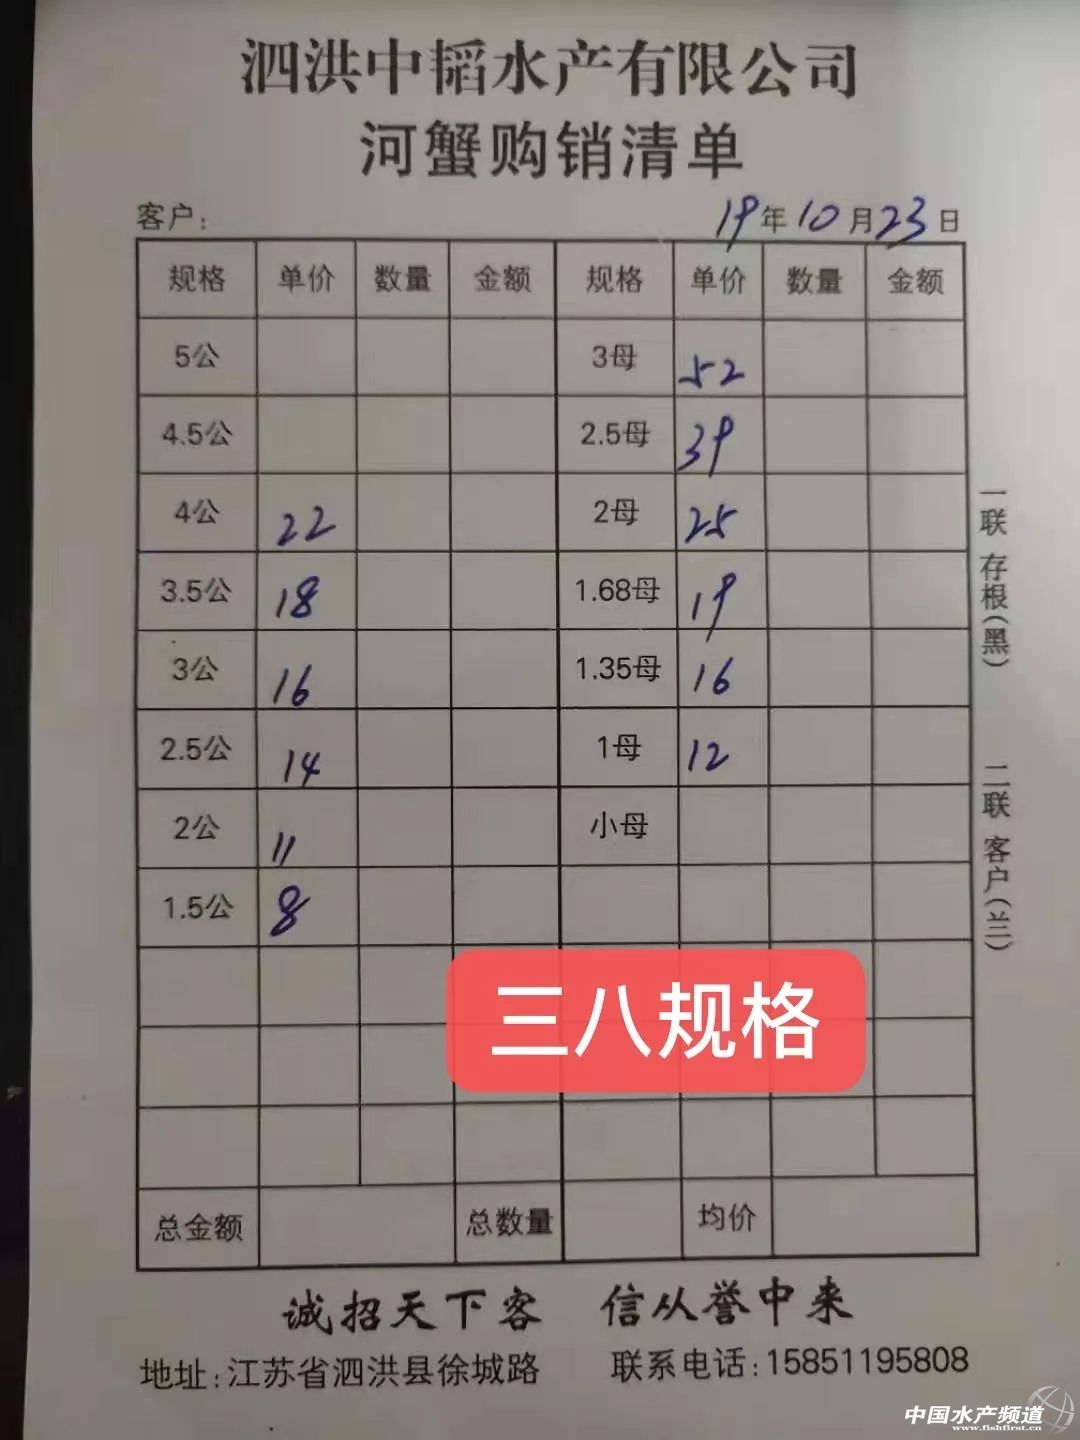 泗洪中韬水产有限公司
河蟹购销清单
客户: 19年10月23日
规格 单价 数量 金额 规格 单价 数量 金额
5公 3母 52
4.5公 2.5母 39
4公 22 2母 25
3.5公 18 1.68母 19
3公 16 1.35母 16
2.5公 14 1母 12
2公 11 小母
1.5公 8
三八规格
总金额 总数量 均价
一联 存根(黑) 二联 客户(兰)
诚招天下客 信从誉中来
地址:江苏省泗洪县徐城路 联系电话:15851195808
中国水产频道
www.fishfirst.cn